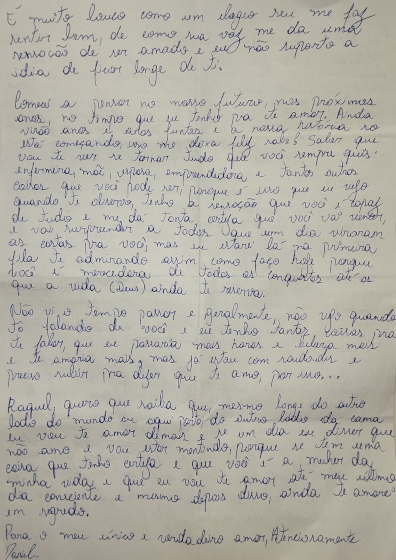 É muito louco como um elogio seu me faz
sentir bem, de como sua voz me da uma
sensação de ser amado e eu não suporto a
ideia de ficar longe de ti.
Comecei a pensar no nosso futuro, nos próximos
anos, no tempo que eu tenho pra te amar. Ainda
virão anos e anos juntos e a nossa história só
está começando, isso me deixa feliz sabe? Saber que
vou te ver se tornar tudo que você sempre quis:
enfermeira, mãe, esposa, empreendedora e tantas outras
coisas que você pode ser, porque é isso que eu vejo
quando te observo, tenho a sensação que você é capaz
de tudo e me dá tanta certeza que você vai vencer,
e vai surpreender a todos que um dia viraram
as costas pra você, mas eu estarei lá na primeira
fila te admirando assim como faço hoje porque
você é merecedora de todas as conquistas até as
que a vida (Deus) ainda te reserva.
Não vi o tempo passar e geralmente, não vejo quando
tô falando de você e eu tenho tantas coisas pra
te falar, que eu passaria mais horas e
e te amaria mais, mas já estou com saudades e
preciso subir pra dizer que te amo, por isso...
Raquel, quero que saiba que, mesmo longe do outro
lado do mundo ou aqui perto do outro lado da cama
eu vou te amar demais e se um dia eu disser que
não amo e vou estar mentindo, porque se tem uma
coisa que tenho certeza é que você é a mulher da
minha vida e que eu vou te amar até meu último
dia consciente e mesmo depois disso, ainda te amarei
em segredo.
Para o meu único e verdadeiro amor, Atenciosamente